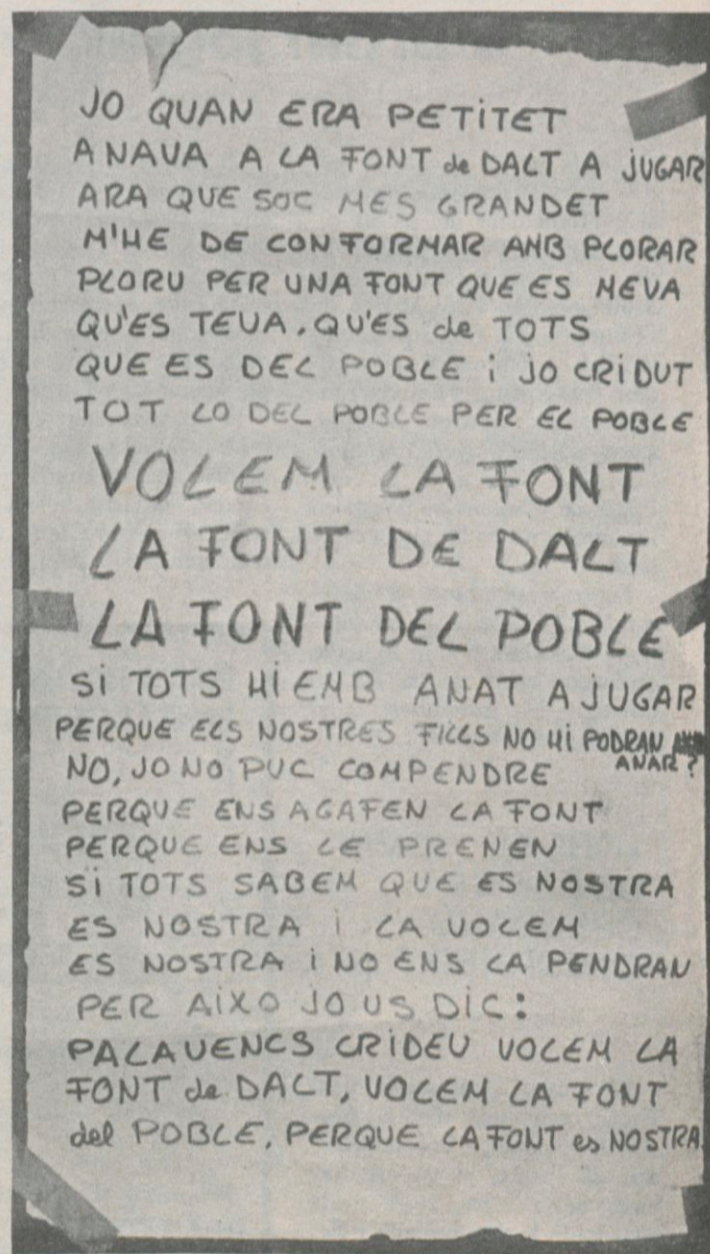 JO QUAN ERA PETiTET
ANAVA A LA FONT de DALT A JUGAR
ARA QUE SOC MES GRANDET
M'HE DE CONFORMAR AMB PLORAR
PLORU PER UNA FONT QUE ES MEVA
QU'ES TEUA, QU'ES de TOTS
QUE ES DEL POBLE i JO CRiDUT
TOT LO DEL POBLE PER EL POBLE
VOLEM LA FONT
LA FONT DE DALT
LA FONT DEL POBLE
Si TOTS Hi EMB ANAT A JUGAR
PERQUE ELS NOSTRES FiLLS NO Hi PODRAN
ANAR?
NO, JO NO PUC COMPENDRE
PERQUE ENS AGAFEN LA FONT
PERQUE ENS LE PRENEN
Si TOTS SABEM QUE ES NOSTRA
ES NOSTRA i LA VOLEM
ES NOSTRA i NO ENS LA PENDRAN
PER AiXO JO US DiC:
PALAUENCS CRiDEU VOLEM LA
FONT de DALT, VOLEM LA FONT
del POBLE, PERQUE LA FONT es NOSTRA